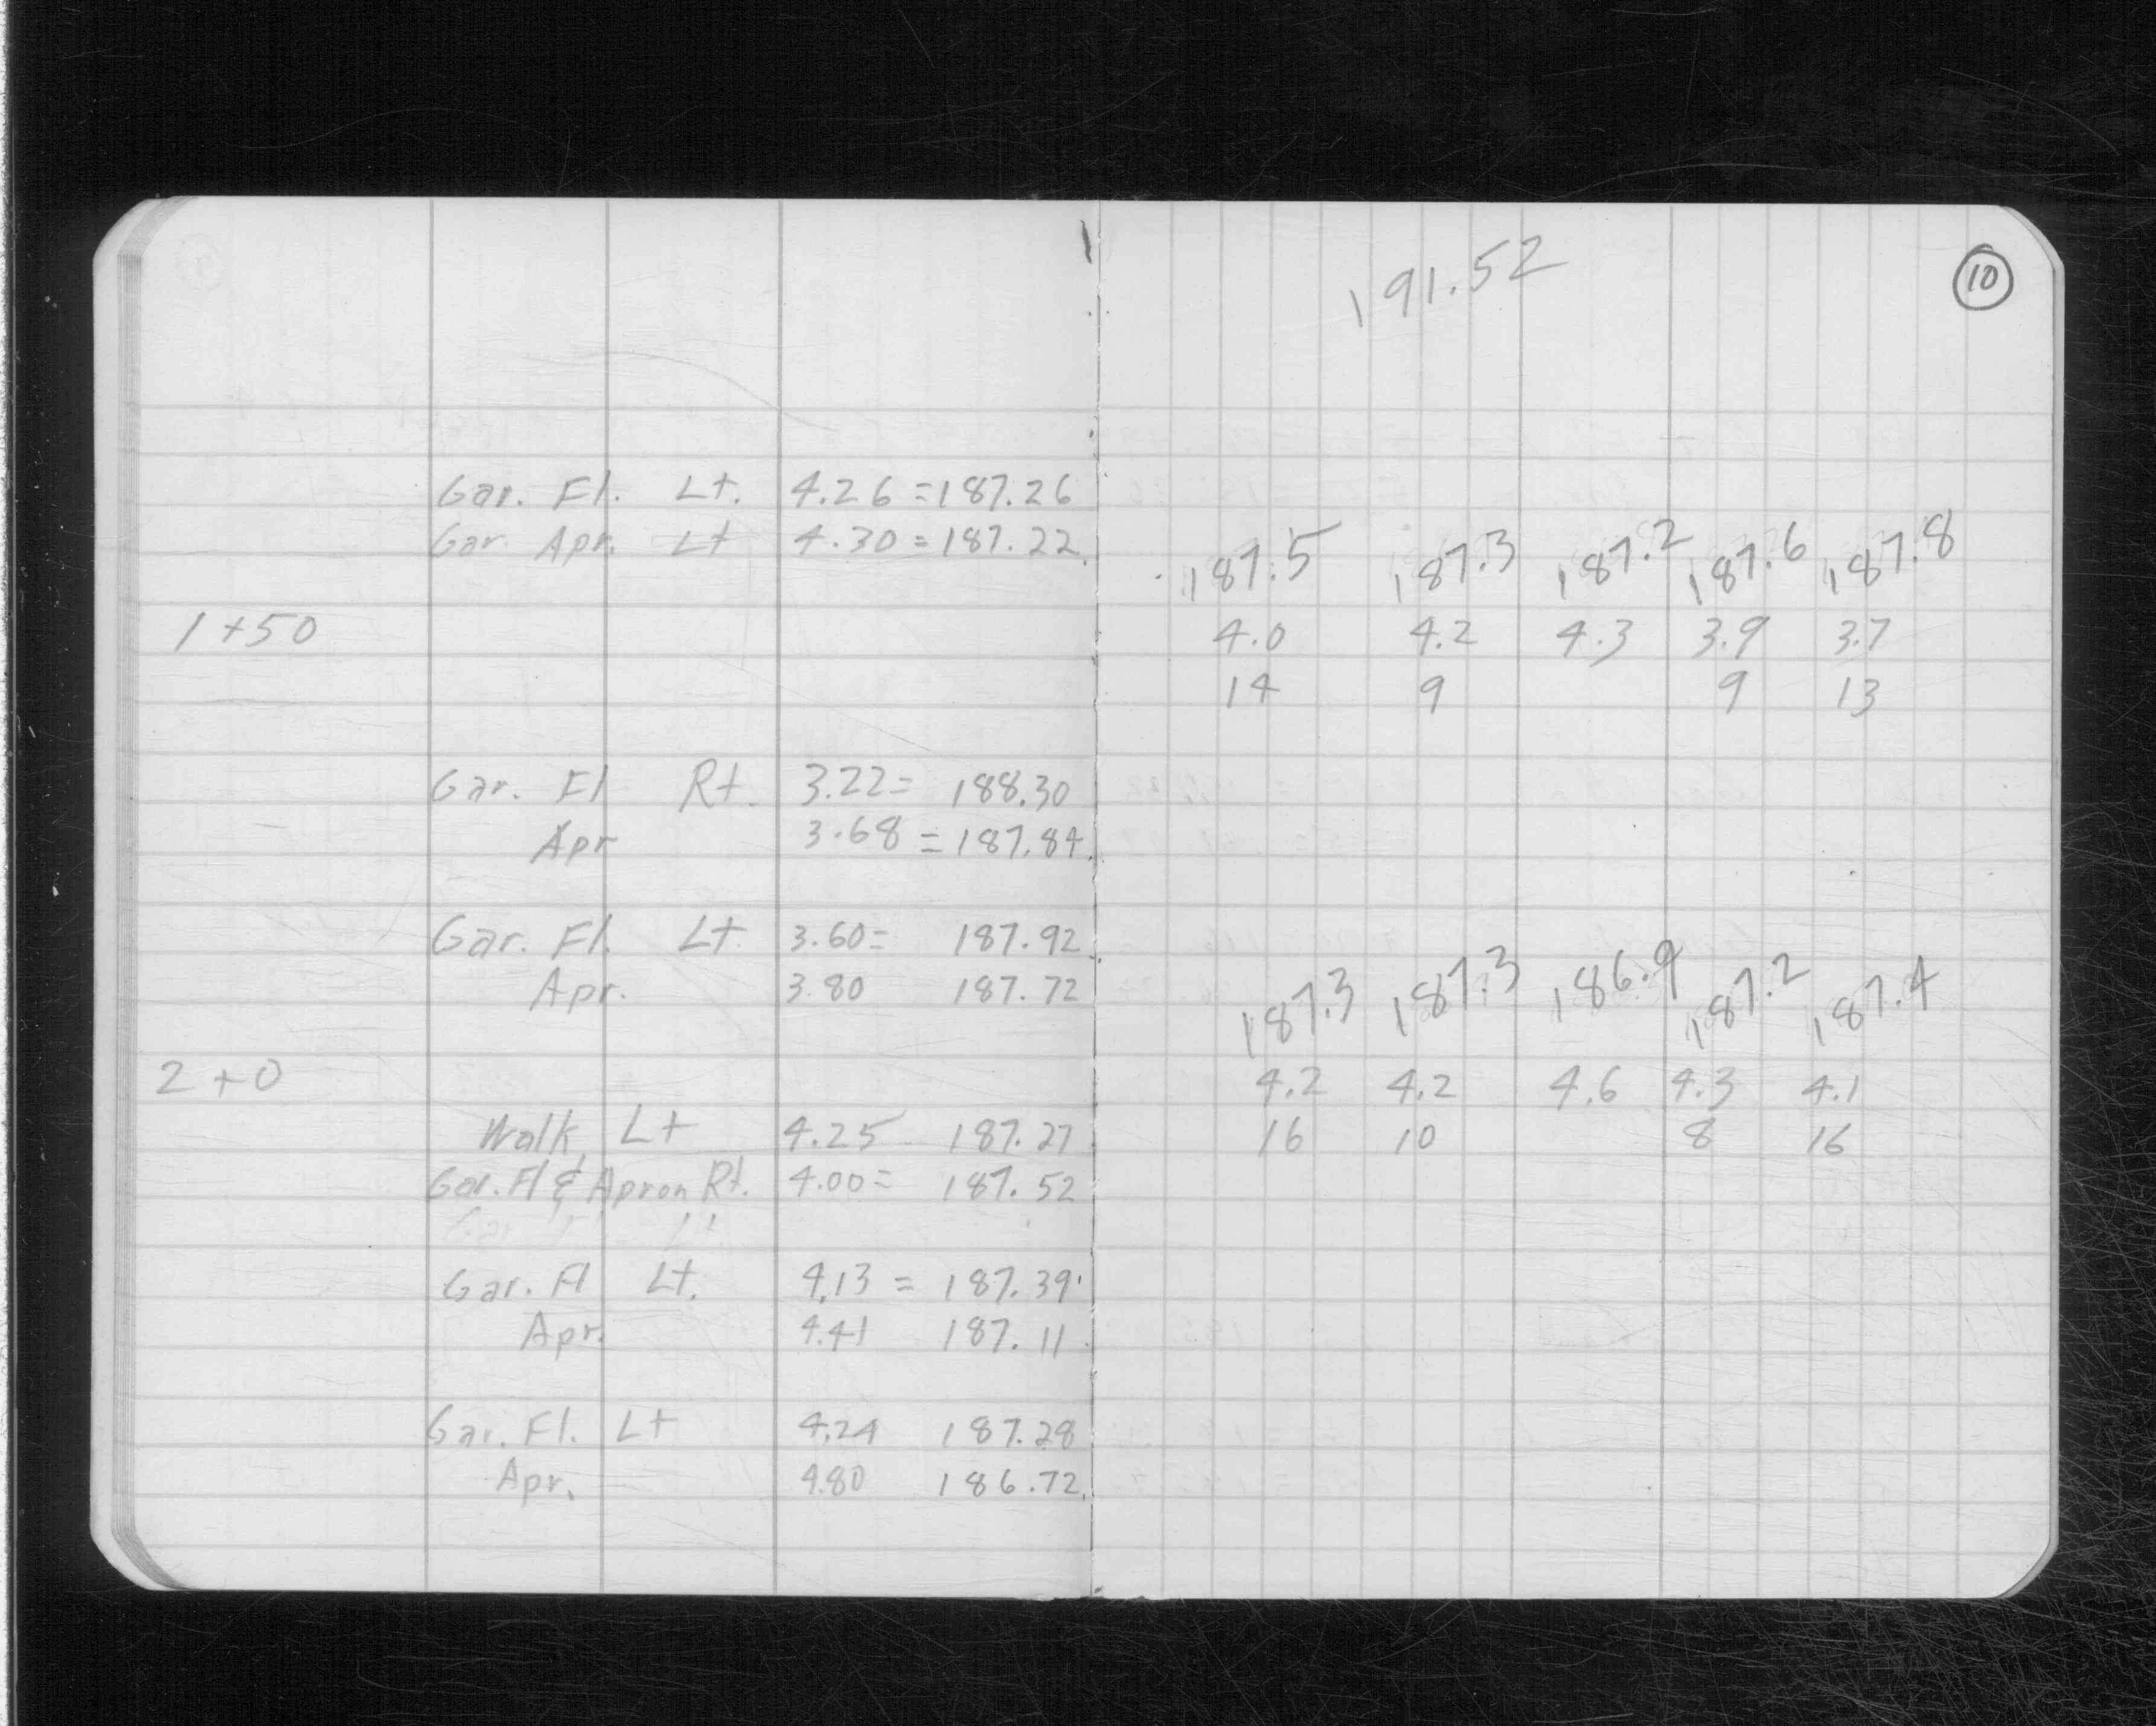 191.52
10
Gar. Fl. Lt. 4.26 = 187.26
Gar. Apr. Lt 4.30 = 187.22
187.5 187.3 187.2 187.6 187.8
1+50 4.0 4.2 4.3 3.9 3.7
14 9 9 13
Gar. Fl Rt. 3.22 = 188.30
Apr 3.68 = 187.84
Gar. Fl. Lt 3.60 = 187.92
Apr. 3.80 187.72
187.3 187.3 186.9 187.2 187.4
2+0 4.2 4.2 4.6 4.3 4.1
Walk Lt 4.25 187.27 16 10 8 16
Gar. Fl & Apron Rt. 4.00 = 187.52
Gar. Fl Lt. 4.13 = 187.39
Apr. 4.41 187.11
Gar. Fl. Lt 4.24 187.28
Apr. 4.80 186.72